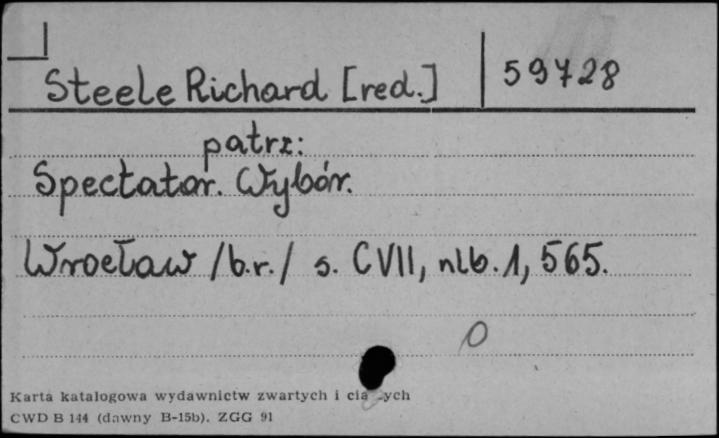 Steele Richard [red.] 59728
patrz:
Spectator. Wybór.
Wrocław /b.r./ s. CVII, nlb. 1, 565.
0
Karta katalogowa wydawnictw zwartych i
CWD B 144 (dawny B-15b). ZGG 91